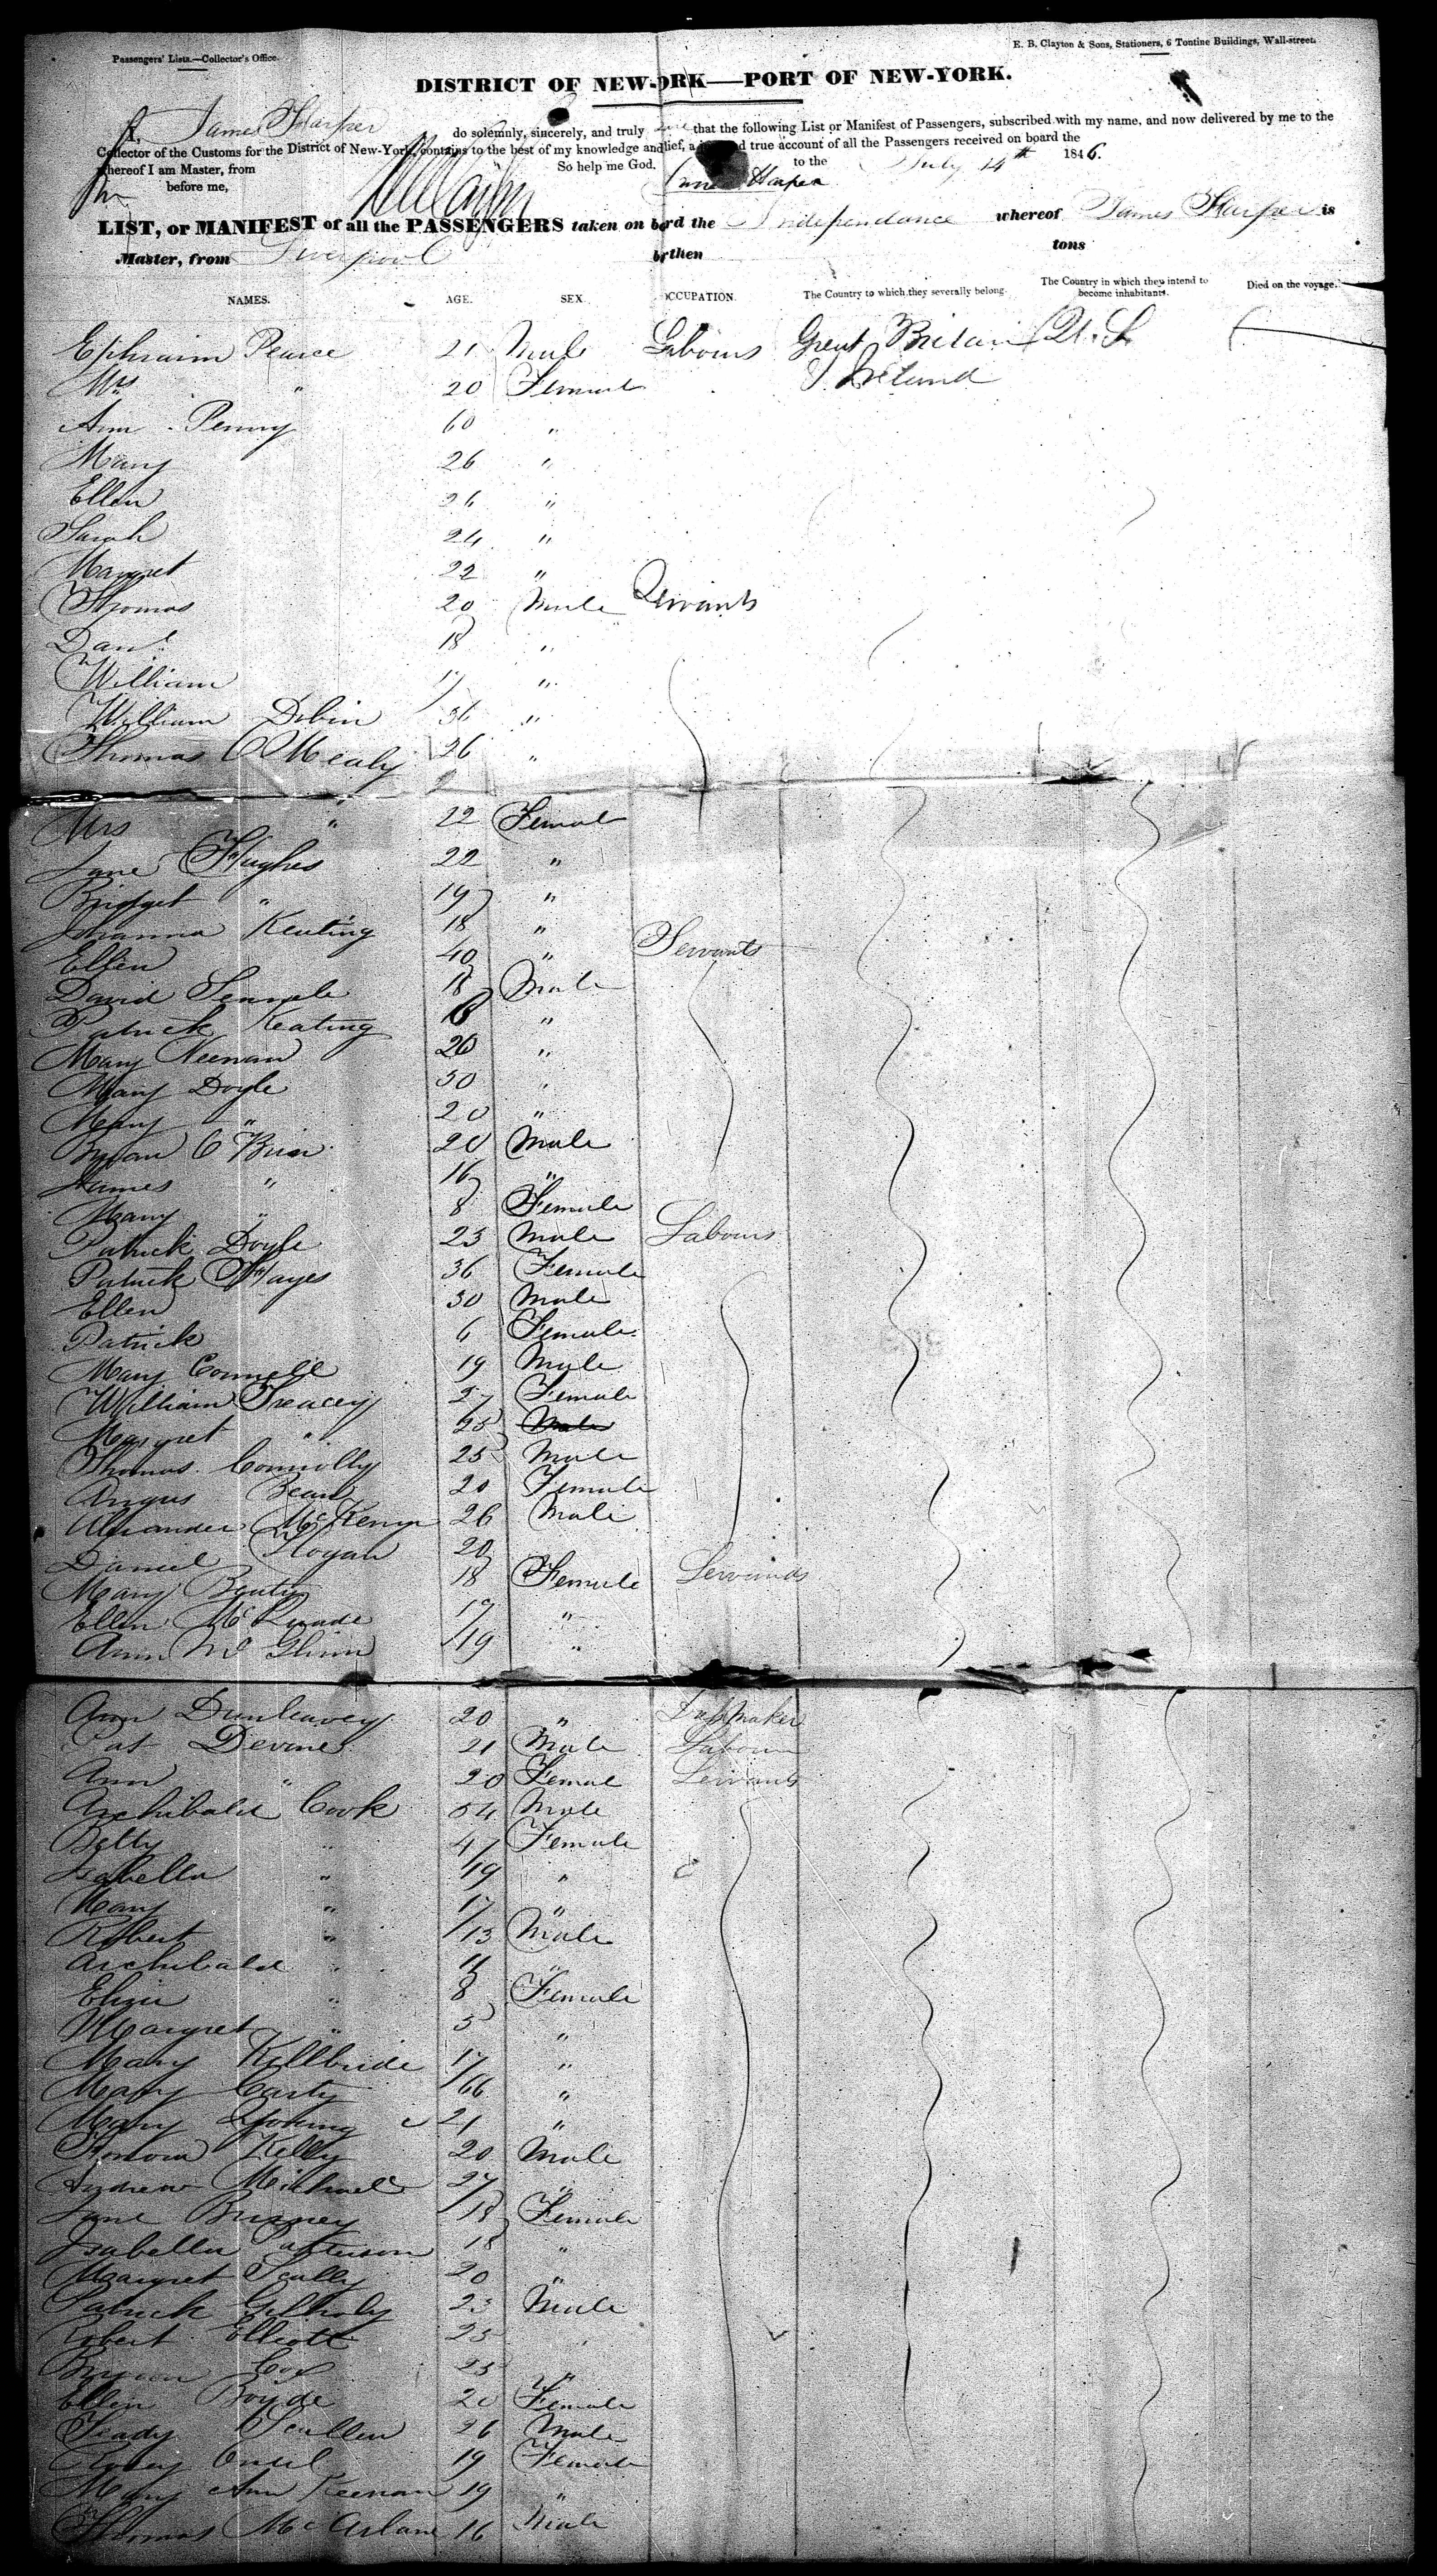 Passengers' Lists.—Collector's Office.
E. B. Clayton & Sons, Stationers, 6 Tontine Buildings, Wall-street.
DISTRICT OF NEW-ORK—PORT OF NEW-YORK.
I, James Harper do solemnly, sincerely, and truly that the following List or Manifest of Passengers, subscribed with my name, and now delivered by me to the
Collector of the Customs for the District of New-York, contains to the best of my knowledge and lief, a d true account of all the Passengers received on board the
whereof I am Master, from to the July 14th 1846.
before me, So help me God. James Harper
LIST, or MANIFEST of all the PASSENGERS taken on bord the Independance whereof James Harper is
Master, from Liverpool brthen tons
NAMES. AGE. SEX. OCCUPATION. The Country to which they severally belong. The Country in which they intend to become inhabitants. Died on the voyage.
Ephraim Pearce 21 Male Labours Great Britain U.S.
Mrs " 20 Female Ireland
Ann Penny 60 "
Mary 26 "
Ellen 26 "
Sarah 24 "
Margret 22 "
Thomas 20 Male Servants
Danl 18 "
William 17 "
William Dobin 36 "
Thomas O Mealy 26 "
Mrs " 22 Female
Jane Hughes 22 "
Bridget " 19 "
Johanna Keating 18 "
Ellen 40 " Servants
David Semple 18 Male
Patrick Keating 18 "
Mary Neenan 20 "
Mary Doyle 50 "
Mary " 20 "
Bryan O Brien 20 Male
James " 16 "
Mary " 8 Female
Patrick Doyle 23 Male Labours
Patrick Hayes 36 Female
Ellen 30 Male
Patrick 6 Female
Mary Connell 19 Male
William Treacey 27 Female
Margret " 25 Male
Thomas Connolly 25 Male
Angus Bean 20 Female
Alexander McKenzie 26 Male
Daniel Hogan 20
Mary 18 Female Servants
Ellen 17 "
Ann McGlinn 19 "
Ann Dunleavey 20 "
Pat Devine 21 Male Labour
Ann " 20 Female Servants
Archibald Cook 54 Male
Betty " 47 Female
Isabella " 19 "
Mary " 17 "
Robert " 13 Male
Archibald " 11 "
Eliza " 8 Female
Margret " 5 "
Mary Killbride 17 "
Mary Carty 66 "
Mary Young 21 "
Kelly 20 Male
Andrew Michael 27 "
Jane 18 Female
Isabella Patterson 18 "
Margret Scully 20 "
Patrick Gilhooly 23 Male
Robert Elliott 25
Bryan Cox 25 "
Ellen Boyde 20 Female
Scullen 26 Male
Oneil 19 Female
Mary Ann Keenan 19 "
Thomas McArlane 16 Male